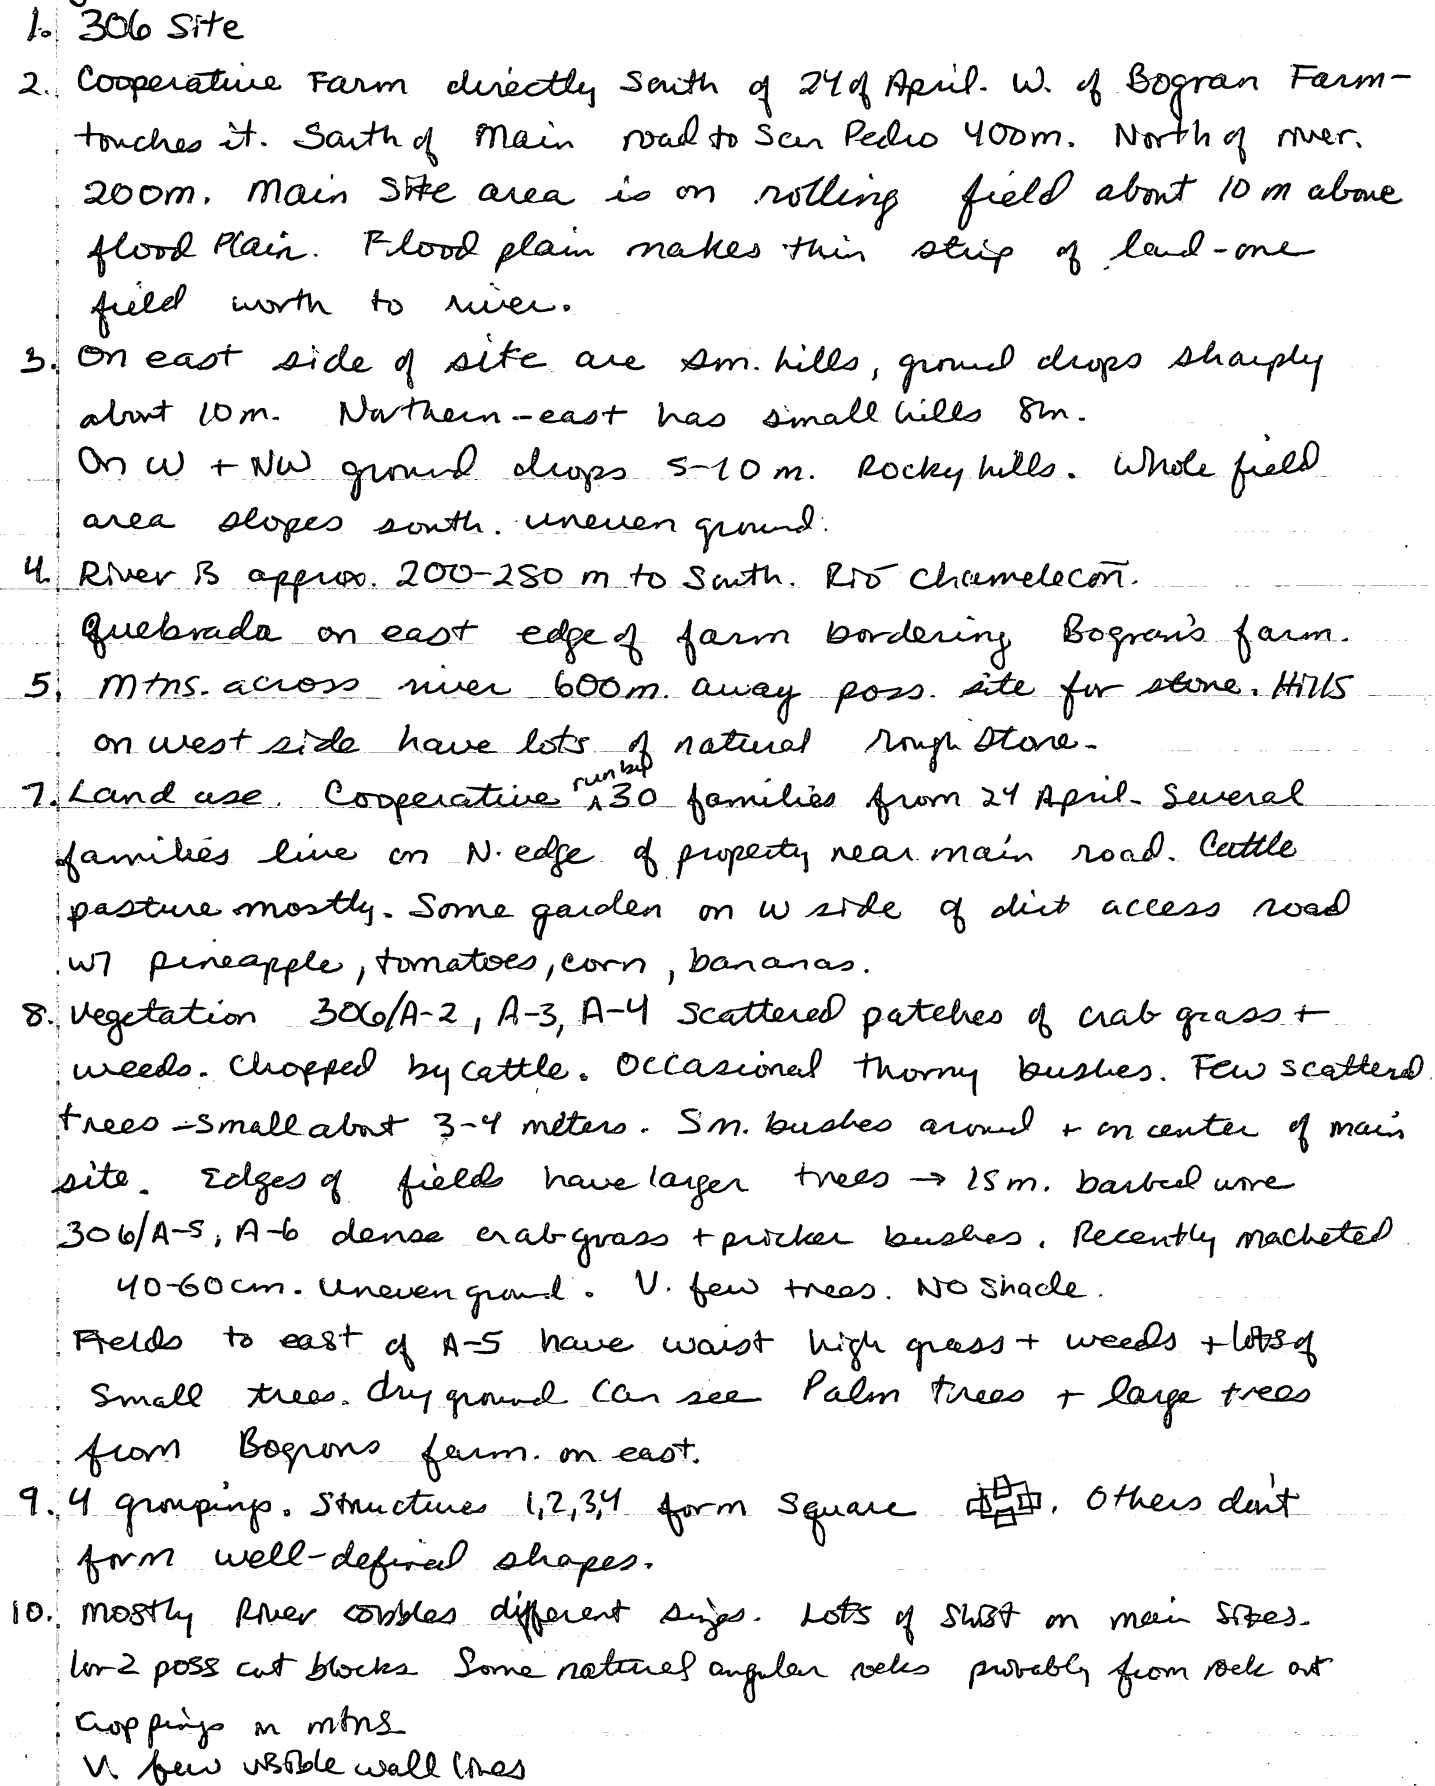 1. 306 Site
2. Cooperative Farm directly South of 24 of April. W. of Bogran Farm-
touches it. South of Main road to San Pedro 400m. North of river.
200m. Main Site area is on rolling field about 10 m above
flood Plain. Flood plain makes thin strip of land - one
field worth to river.
3. On east side of site are sm. hills, ground drops sharply
about 10 m. Northern-east has small hills 8m.
On W + NW ground drops 5-10 m. Rocky hills. Whole field
area slopes south. uneven ground.
4. River is approx. 200-280 m to South. Rio Chamelecon.
Quebrada on east edge of farm bordering Bogran's farm.
5. Mtns. across river 600m. away poss. site for stone. Hills
on west side have lots of natural rough stone.
7. Land use. Cooperative run by 30 families from 24 April. Several
families live on N. edge of property near main road. Cattle
pasture mostly. Some garden on W side of dirt access road
w/ pineapple, tomatoes, corn, bananas.
8. Vegetation 306/A-2, A-3, A-4 Scattered patches of crab grass +
weeds. Chopped by cattle. Occasional thorny bushes. Few scatterd
trees - small about 3-4 meters. Sm. bushes around + on center of main
site. Edges of fields have larger trees → 15 m. barbed wire
306/A-5, A-6 dense crab grass + pricker bushes. Recently macheted
40-60 cm. Uneven ground. V. few trees. No Shade.
Fields to east of A-5 have waist high grass + weeds + lots of
Small trees. dry ground Can see Palm Trees + large trees
from Bograns farm. on east.
9. 4 groupings. Structures 1,2,3,4 form Square. Others don't
form well-defined shapes.
10. Mostly River cobbles different sizes. Lots of Shist on main Sites.
1 or 2 poss cut blocks Some natural angular rocks probably from rock out
croppings in mtns
V. few visible wall lines